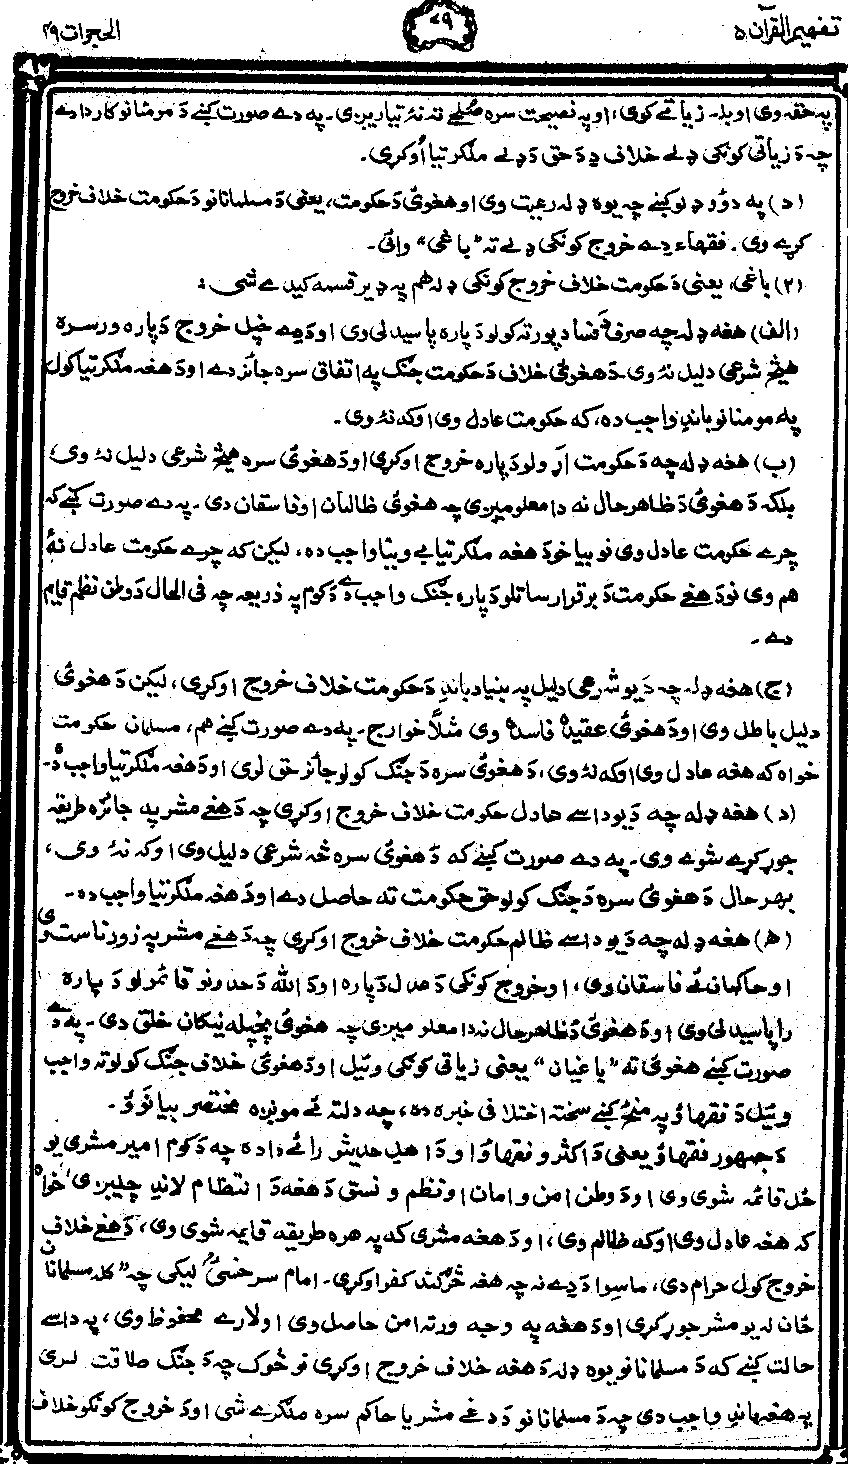 تفهیم القرآن ۵
۷۹
الحجرات ۴۹
په حقه وی او بله زیاتے کوی، او په نصیحت سره صُلحے ته نۀ تیاریږی۔ په دے صورت کښے دَ مومنانو کار دا دے
چه دَ زیاتی کونکی ډلے خلاف دِ دَ حق دَ ډلے ملګرتیا اُوکړی۔
(د) په دوؤ ډلو کښے چه یوه ډله رعیت وی او هغوئ دَ حکومت، یعنی دَ مسلمانانو دَ حکومت خلاف خروج
کړے وی۔ فقهاء دے خروج کونکی ډلے ته "باغی" وائی۔
(۲) باغی، یعنی دَ حکومت خلاف خروج کونکی ډله هم په ډیر قسمه کیدے شی :
(الف) هغه ډله چه صرف فساد پورته کولو دَپاره پاسیدلی وی او دَدے خپل خروج دَپاره ورسره
هیڅ شرعی دلیل نۀ وی۔ دَ هغوئ خلاف دَ حکومت جنګ په اتفاق سره جائز دے او دَ هغه ملګرتیا کول
په مومنانو باندِ واجب ده، که حکومت عادل وی او که نۀ وی۔
(ب) هغه ډله چه دَ حکومت اړولو دَپاره خروج اوکړی او دَ هغوئ سره هیڅ شرعی دلیل نۀ وی
بلکه دَ هغوئ دَ ظاهر حال نه دا معلومیږی چه هغوئ ظالمان او فاسقان دی۔ په دے صورت کښے که
چرے حکومت عادل وی نو بیا خو دَ هغه ملګرتیا بے وینا واجب ده، لیکن که چرے حکومت عادل نۀ
هم وی نو دَ هغے حکومت دَ برقرار ساتلو دَپاره جنګ واجب دے دَ کوم په ذریعه چه فی الحال دَ وطن نظم قایم
دے۔
(ج) هغه ډله چه دَ یو شرعی دلیل په بنیاد باندِ دَ حکومت خلاف خروج اوکړی، لیکن دَ هغوئ
دلیل باطل وی او دَ هغوئ عقیده فاسده وی مثلاً خوارج۔ په دے صورت کښے هم، مسلمان حکومت
خواه که هغه عادل وی او که نۀ وی، دَ هغوئ سره دَ جنګ کولو جائز حق لری او دَ هغه ملګرتیا واجب ده۔
(د) هغه ډله چه دَ یو داسے عادل حکومت خلاف خروج اوکړی چه دَ هغے مشر په جائزه طریقه
جوړ کړے شوے وی۔ په دے صورت کښے که دَ هغوئ سره څه شرعی دلیل وی او که نۀ وی،
بهر حال دَ هغوئ سره دَ جنګ کولو حق حکومت ته حاصل دے او دَ هغه ملګرتیا واجب ده۔
(ه) هغه ډله چه دَ یو داسے ظالم حکومت خلاف خروج اوکړی چه دَ هغے مشر په زور ناست وی
او حاکمان ئے فاسقان وی، او خروج کونکی دَ عدل دَپاره او دَ الله دَ حدونو قائمولو دَ پاره
راپاسیدلی وی او دَ هغوئ دَ ظاهر حال نه دا معلومیږی چه هغوئ پخپله نیکان خلق دی۔ په دے
صورت کښے هغوئ ته "باغیان" یعنی زیاتی کونکی وئیل او دَ هغوئ خلاف جنګ کولو ته واجب
وئیل دَ فقهاؤ په منځ کښے سخته اختلافی خبره ده، چه دلته ئے مونږه مختصر بیانوؤ۔
دَ جمهور فقهاؤ یعنی دَ اکثرو فقهاؤ او دَ اهل حدیثو رائے دا ده چه دَ کوم امیر مشری یو
ځل قائمه شوی وی او دَ وطن امن و امان او نظم و نسق دَ هغه دَ انتظام لاندِ چلیږی، خواه
که هغه عادل وی او که ظالم وی، او دَ هغه مشری که په هره طریقه قایمه شوی وی، دَ هغے خلاف
خروج کول حرام دی، ماسوا دَ دے نه چه هغه څرګند کفر اوکړی۔ امام سرخسیؒ لیکی چه "کله مسلمانان
ځان له یو مشر جوړ کړی او دَ هغه په وجه ورته امن حاصل وی او لارے محفوظ وی، په داسے
حالت کښے که دَ مسلمانانو یوه ډله دَ هغه خلاف خروج اوکړی نو څوک چه دَ جنګ طاقت لری
په هغه باندِ واجب دی چه دَ مسلمانانو دَ دغے مشر یا حاکم سره ملګرے شی او دَ خروج کونکو خلاف